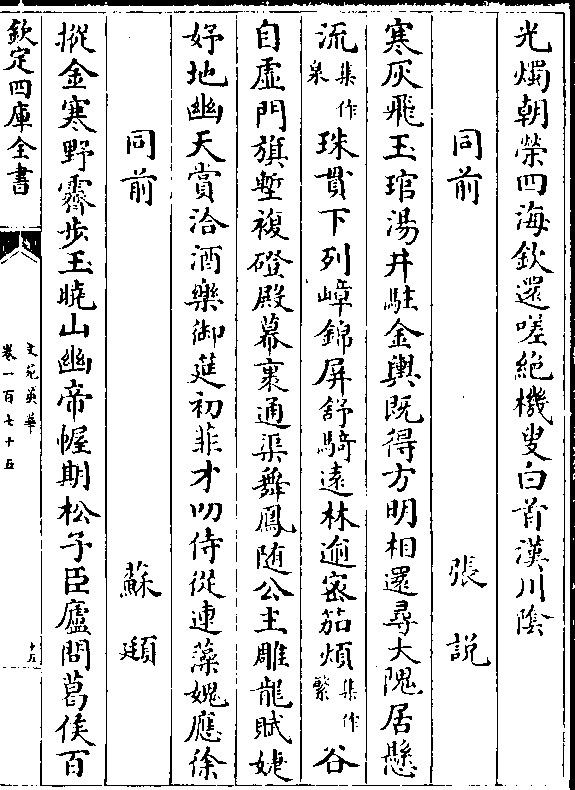 光燭朝榮四海欽還嗟絶機叟白首漢川陰
同前 張説
寒灰飛玉琯湯井駐金輿既得方明相還尋大隗居懸
流集作泉珠貫下列嶂錦屏舒騎遠林逾宻笳煩集作繁谷
自虛門旗塹複磴殿幕裹通渠舞鳳随公主雕龍賦婕
妤地幽天賞洽酒樂御筵初菲才叨侍從連藻媿應徐
同前 蘇頲
摐金寒野霽步玉曉山幽帝幄期松子臣廬問葛侯百
欽定四庫全書
文苑英華
卷一百七十五
十五